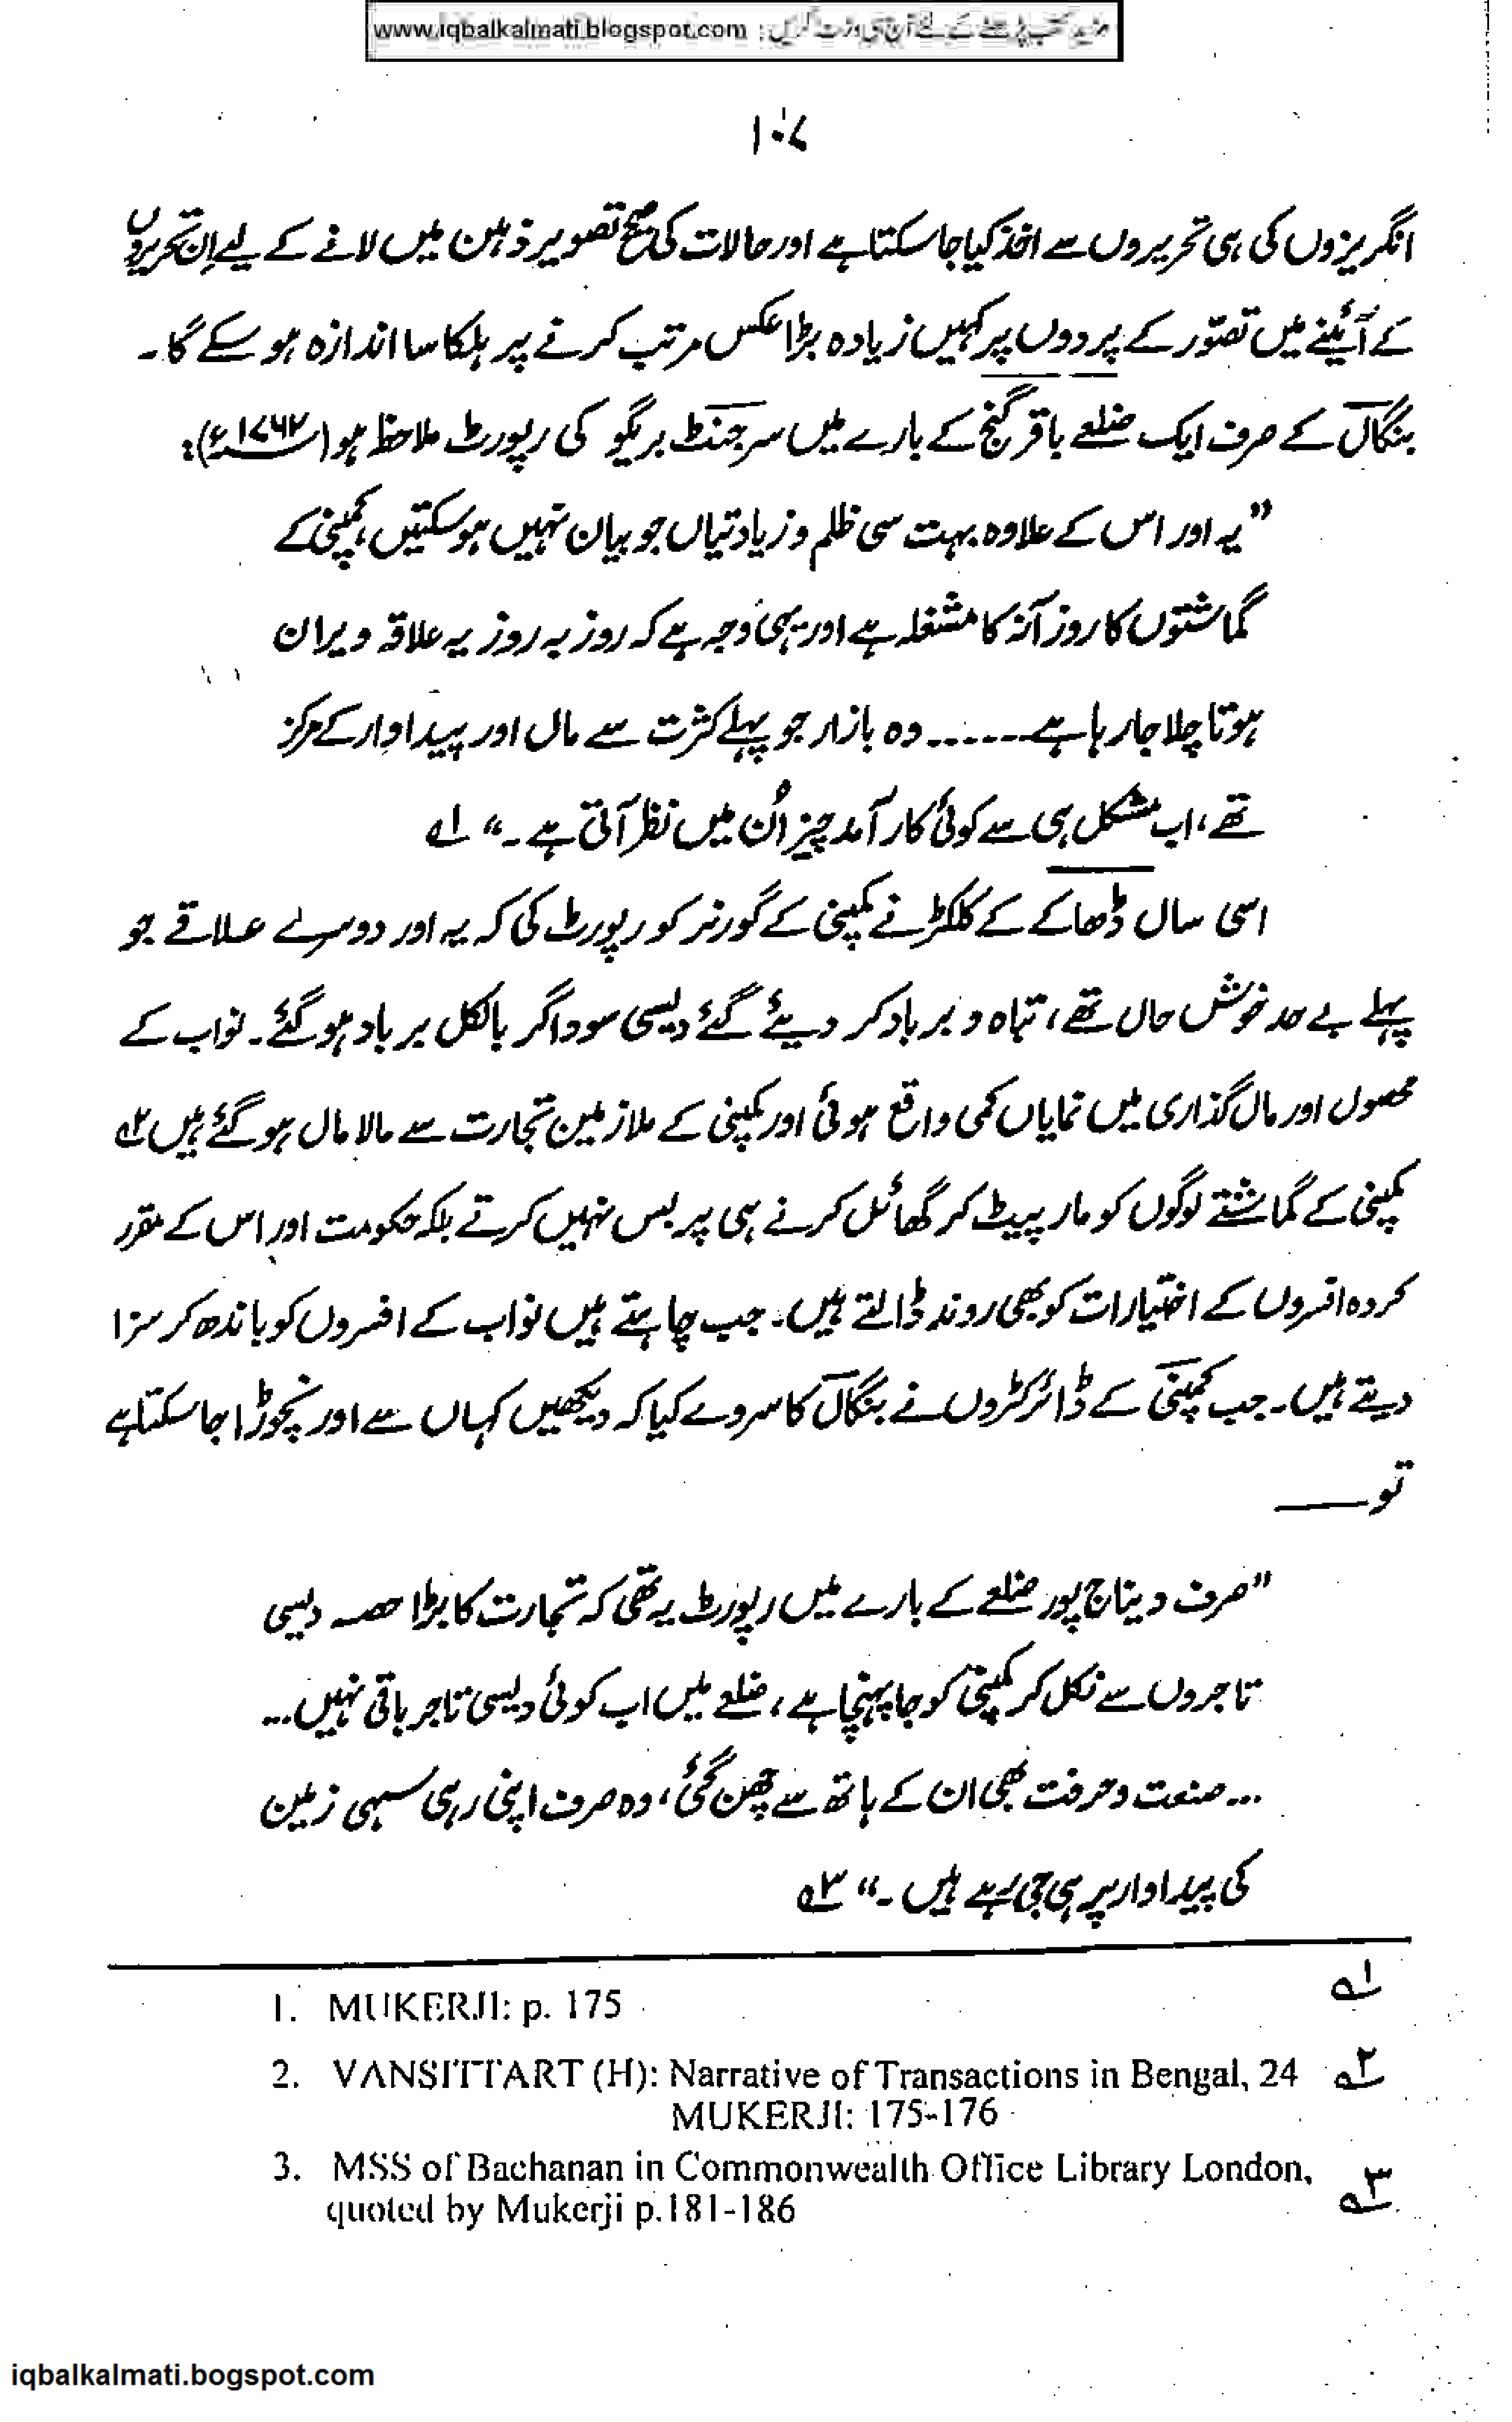 مزید کتب پڑھنے کے لئے آج ہی وزٹ کریں : www.iqbalkalmati.blogspot.com
۱۰۷
انگریزوں کی ہی تحریروں سے اخذ کیا جا سکتا ہے اور حالات کی صحیح تصویر ذہن میں لانے کے لیے اِن تحریروں
کے آئینے میں تصوّر کے پردوں پر کہیں زیادہ بڑا عکس مرتب کرنے پر ہلکا سا اندازہ ہو سکے گا۔
بنگال کے صرف ایک ضلعے باقر گنج کے بارے میں سرجنٹ بریگو کی رپورٹ ملاحظ ہو (۱۷۶۲ء):
”یہ اور اس کے علاوہ بہت سی ظلم و زیادتیاں جو بیان نہیں ہو سکتیں، کمپنی کے
گماشتوں کا روز آنہ کا مشغلہ ہے اور یہی وجہ ہے کہ روز بہ روز یہ علاقہ ویران
ہوتا چلا جا رہا ہے ۔۔۔۔۔۔ وہ بازار جو پہلے کثرت سے مال اور پیداوار کے مرکز
تھے، اب مشکل ہی سے کوئی کار آمد چیز اُن میں نظر آتی ہے۔“ ۱؎
اسی سال ڈھاکے کے کلکٹر نے کمپنی کے گورنر کو رپورٹ کی کہ یہ اور دوسرے علاقے جو
پہلے بے حد خوش حال تھے، تباہ و برباد کر دیئے گئے دیسی سوداگر بالکل برباد ہو گئے۔ نواب کے
محصول اور مال گذاری میں نمایاں کمی واقع ہوئی اور کمپنی کے ملازمین تجارت سے مالا مال ہو گئے ہیں ۲؎
کمپنی کے گماشتے لوگوں کو مار پیٹ کر گھائل کرنے ہی پر بس نہیں کرتے بلکہ حکومت اور اس کے مقرر
کردہ افسروں کے اختیارات کو بھی روند ڈالتے ہیں۔ جب چاہتے ہیں نواب کے افسروں کو باندھ کر سزا
دیتے ہیں۔ جب کمپنی کے ڈائرکٹروں نے بنگال کا سروے کیا کہ دیکھیں کہاں سے اور نچوڑا جا سکتا ہے
تو ——
”صرف دیناج پور ضلعے کے بارے میں رپورٹ یہ تھی کہ تجارت کا بڑا حصہ دیسی
تاجروں سے نکل کر کمپنی کو جا پہنچا ہے، ضلعے میں اب کوئی دیسی تاجر باقی نہیں...
... صنعت و حرفت بھی ان کے ہاتھ سے چھن گئی، وہ صرف اپنی رہی سہی زمین
کی پیداوار پر ہی جی رہے ہیں۔“ ۳؎
1. MUKERJI: p. 175 ۱؎
2. VANSITTART (H): Narrative of Transactions in Bengal, 24 ۲؎
MUKERJI: 175-176
3. MSS of Bachanan in Commonwealth Office Library London, ۳؎
quoted by Mukerji p.181-186
iqbalkalmati.bogspot.com